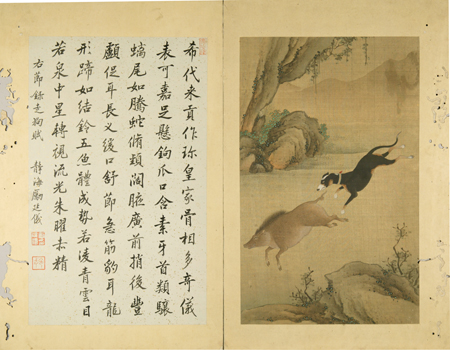 希代來貢作珎皇家骨相多奇儀
表可嘉足懸鉤爪口含素牙首類驤
螭尾如騰蛇脩頸闊腋廣前捎後豐
顱促耳長叉緩口舒節急筋豹耳龍
形蹄如結鈴五魚體成勢若凌青雲目
若泉中星轉視流光朱曜赤精
右節錄走狗賦 靜海勵廷儀